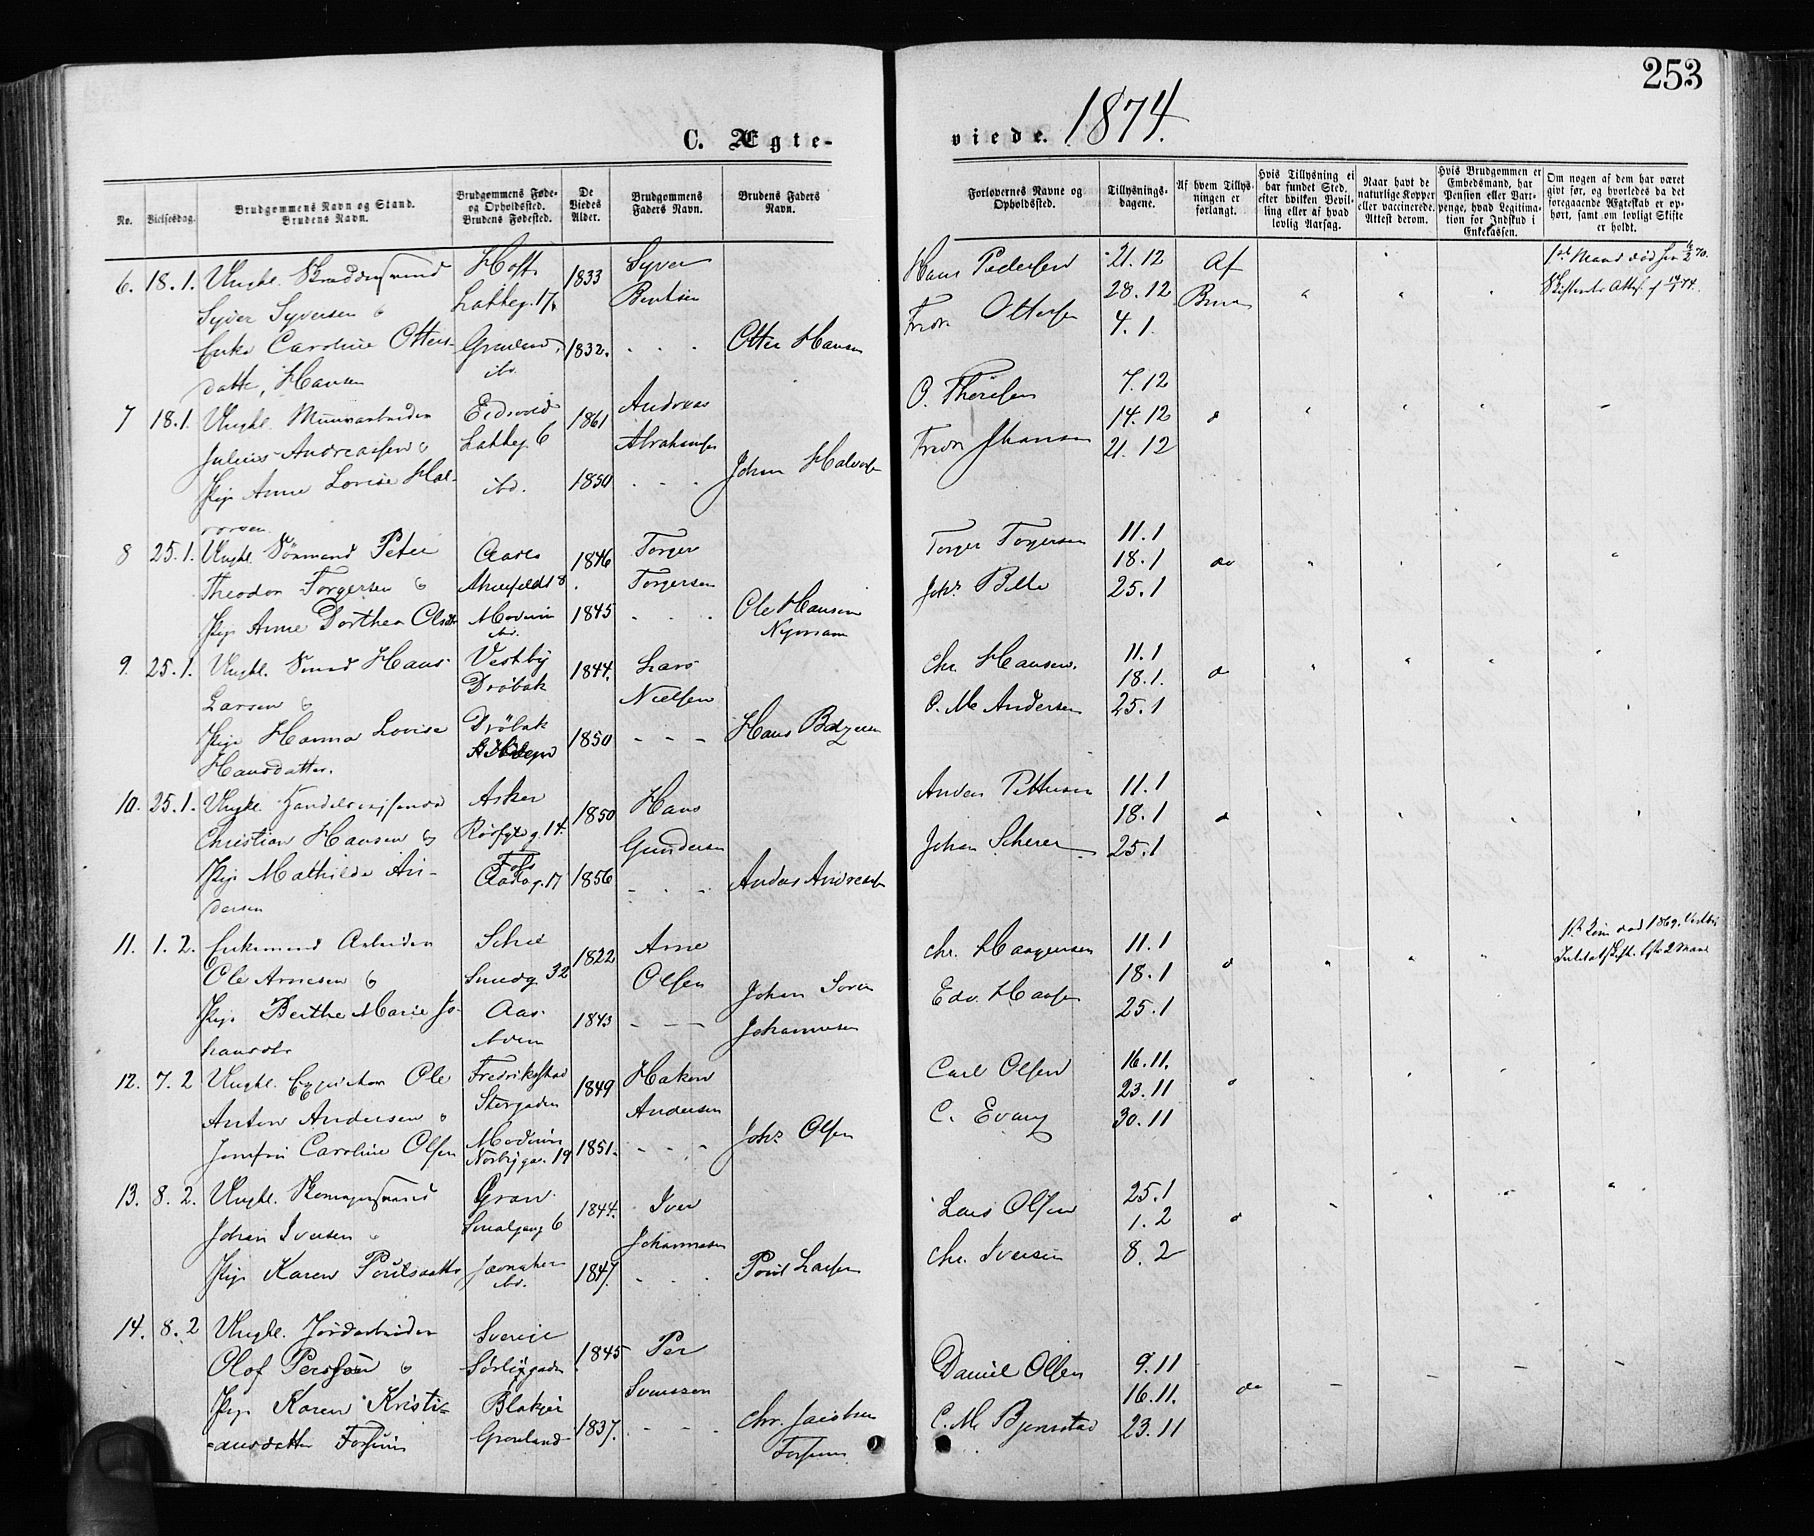 253
C. Ægte-
viede. 1874.
No.
Vielsesdag.
Brudgommens Navn og Stand.
Brudens Navn.
Brudgommens Føde-
og Opholdssted.
Brudens Fødested.
De
Viedes
Alder.
Brudgommens
Faders Navn.
Brudens Faders
Navn.
Forlovernes Navne og
Opholdssted.
Tillysnings-
dagene.
Af hvem Tillys-
ningen er
forlangt.
Hvis Tillysning ei
har fundet Sted,
efter hvilken Bevil-
ling eller af hvad
lovlig Aarsag.
Naar havt de
naturlige Kopper
eller vaccinerede.
Attest derom.
Hvis Brudgommen er
Embedsmand, har
Pension eller Vart-
penge, hvad Legitima-
tion for Indskud i
Enkekassen.
Om nogen af dem har været
givt før, og hvorledes da det
foregaaende Ægteskab er op-
hørt, samt om lovligt Skifte
er holdt.
6. 18.1. Ungkl.
Syver Syversen &
Enke Caroline Otters-
datter, Hansen
Lakkeg. 17
1833
1832.
Syver
Berntsen
Otter Hansen
Hans Pedersen
Fredr Ottersen
21.12
28.12
4.1.
Af
7 18.1. Ungkl. Murarbeider
Julius Andreassen &
Pige Anne Lovise Hal-
vorsen
Eidsvold
Lakkeg. 6
ibd.
1861
1850
Andreas
Abrahamsen
Johan Halvorsen
7.12
14.12
21.12
do
8 25.1. Ungkl. Sømand Peter
Theodor Torgersen &
Pige Anne Dorthea Olsdtr
Modum
ibd.
1846
1845
Torger
Torgersen
Ole Hansen
Torger Torgersen
11.1
18.1
25.1
do
9. 25.1. Ungkl. Smed Hans
Larsen &
Pige Hanna Lovise
Hansdatter.
Vestby
Drøbak
Drøbak
1844.
1850
Lars
Nielsen
Chr. Hansen.
O. M. Andersen
11.1
18.1.
25.1
do
10. 25.1. Ungkl. Handelsreisende
Christian Hansen &
Pige Mathilde An-
dersen
Asker
1850
1856
Hans
Gundersen
Anders Andreasen
Anders Pettersen
Johan Scherer
11.1
18.1
25.1
do
11. 1.2. Enkemand Arbeider
Ole Arnesen &
Pige Berthe Marie Jo-
hansdtr
Smedg. 32
Aas
1822
1843
Arne
Olsen
Johan Soren
Johannesen
Chr. Haagensen
Edv. Hansen
11.1
18.1
25.1
do
12. 7.2 Ungkl. Expeditør Ole
Anton Andersen &
Jomfru Caroline Olsen
Fredrikstad
Storgaden
Modum
Norbygd. 19
1849
1851.
Haken
Andersen
Johs Olsen
Carl Olsen
C. Evang
16.11.
23.11
30.11
do
13. 8.2. Ungkl. Skomagersvend
Johan Iversen &
Pige Karen Poulsdatter
Gran
Smalgang 6
Jevnaker
ibd.
1844.
1847.
Iver
Johannesen
Poul Larsen
Lars Olsen
Chr. Iversen
25.1
1.2
8.2
do
14. 8.2 Ungkl. Jordarbeider
Olof Persson &
Pige Karen Kristi-
ansdatter Fossum
Sverige
Sørligaden
Blakjer
Grønland
1845
1837.
Per
Svensson
Chr. Jacobsen
Fossum
Daniel Olsen
C. M. Bjørnstad
9.11
16.11.
23.11
do